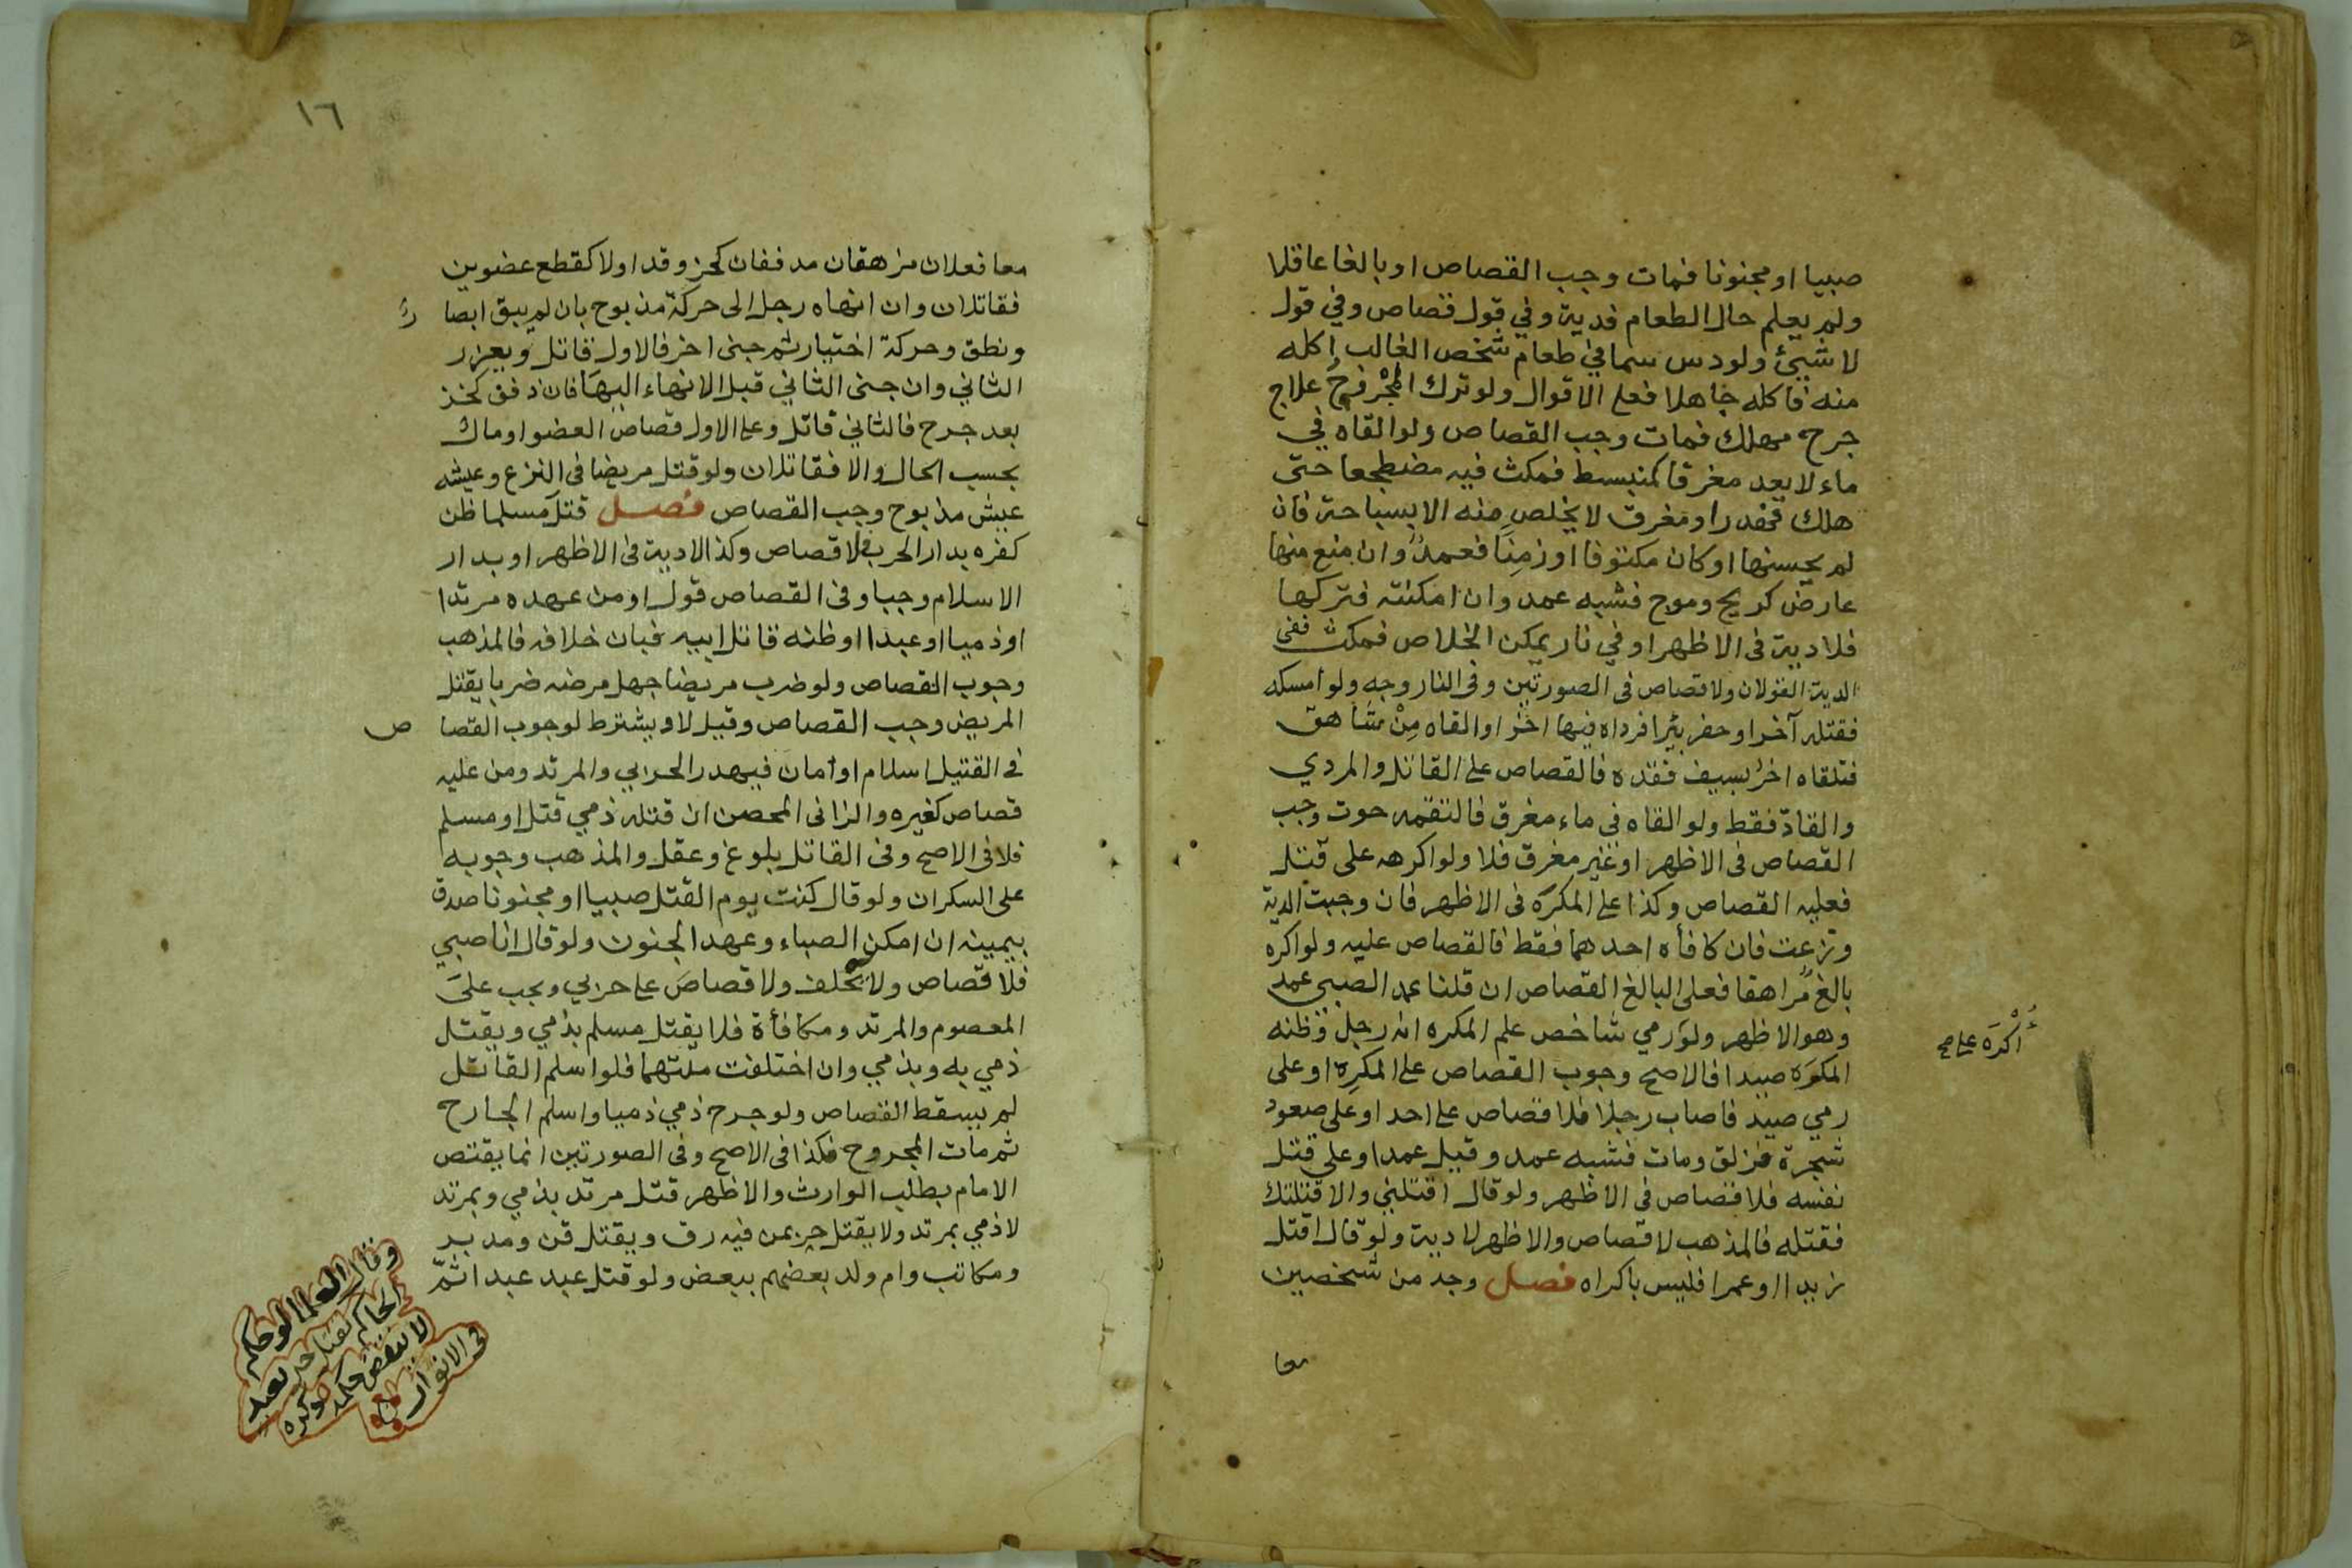 صبيا او مجنونا فمات وجب القصاص او بالغا عاقلا
ولم يعلم حال الطعام فدية وفي قول قصاص وفي قول
لا شيئ ولو دس سما في طعام شخص الغالب اكله
منه فاكله جاهلا فعلى الاقوال ولو ترك المجروح علاج
جرح مهلك فمات وجب القصاص ولو القاه في
ماء لا يعد مغرقا كمنبسط فمكث فيه مضطجعا حتى
هلك فهدر او مغرق لا يخلص منه الا بسباحة فان
لم يحسنها او كان مكتوفا او زمنا فعمد وان منع منها
عارض كريح وموج فشبه عمد وان امكنته فتركها
فلا دية في الاظهر او في نار يمكن الخلاص فمكث ففى
الدية القولان ولا قصاص فى الصورتين وفى النار وجه ولو امسكه
فقتله آخر او حفر بئرا فرداه فيها اخر او القاه من شاهق
فتلقاه اخر بسيف فقده فالقصاص على القاتل والمردي
والقادّ فقط ولو القاه في ماء مغرق فالتقمه حوت وجب
القصاص فى الاظهر او غير مغرق فلا ولو اكرهه على قتل
فعليه القصاص وكذا على المكرَه فى الاظهر فان وجبت الدية
وزعت فان كافأه احدهما فقط فالقصاص عليه ولو اكره
بالغ مراهقا فعلى البالغ القصاص ان قلنا عمد الصبي عمد
وهو الاظهر ولو رمي شاخص علم المكره انه رجل وظنه
المكرَه صيدا فالاصح وجوب القصاص على المكرِه او على
رمي صيد فاصاب رجلا فلا قصاص على احد او على صعود
شجرة فزلق ومات فشبه عمد وقيل عمد او على قتل
نفسه فلا قصاص فى الاظهر ولو قال اقتلني والا قتلتك
فقتله فالمذهب لا قصاص والاظهر لا دية ولو قال اقتل
زيدا او عمرا فليس باكراه فصل وجد من شخصين
معا
أُكْرَهَ على صح
١٦
معا فعلان مزهقان مدففان كحز وقد اولا كقطع عضوين
فقاتلان وان انهاه رجل الى حركة مذبوح بان لم يبق ابصا ر
ونطق وحركة اختيار ثم جنى اخر فالاول قاتل ويعزر
الثاني وان جنى الثاني قبل الانهاء اليها فان ذفف كحز
بعد جرح فالثاني قاتل وعلى الاول قصاص العضو او مال
بحسب الحال والا فقاتلان ولو قتل مريضا فى النزع وعيشه
عيش مذبوح وجب القصاص فصل قتل مسلما ظن
كفره بدار الحرب لا قصاص وكذا لا دية فى الاظهر او بدار
الاسلام وجبا وفى القصاص قول او من عهده مرتدا
او ذميا او عبدا او ظنه قاتل ابيه فبان خلافه فالمذهب
وجوب القصاص ولو ضرب مريضا جهل مرضه ضربا يقتل
المريض وجب القصاص وقيل لا ويشترط لوجوب القصا ص
فى القتيل اسلام او امان فيهدر الحربي والمرتد ومن عليه
قصاص كغيره والزانى المحصن ان قتله ذمي قتل او مسلم
فلا فى الاصح وفى القاتل بلوغ وعقل والمذهب وجوبه
على السكران ولو قال كنت يوم القتل صبيا او مجنونا صدق
بيمينه ان امكن الصباء وعهد الجنون ولو قال انا صبي
فلا قصاص ولا يحلف ولا قصاص على حربي ويجب على
المعصوم والمرتد ومكافأة فلا يقتل مسلم بذمي ويقتل
ذمي به وبذمي وان اختلفت ملتهما فلو اسلم القاتل
لم يسقط القصاص ولو جرح ذمي ذميا واسلم الجارح
ثم مات المجروح فكذا فى الاصح وفى الصورتين انما يقتص
الامام بطلب الوارث والاظهر قتل مرتد بذمي وبمرتد
لا ذمي بمرتد ولا يقتل حر بمن فيه رق ويقتل قن ومدبر
ومكاتب وام ولد بعضهم ببعض ولو قتل عبد عبدا ثم
وقال العلما لو حكم
الحاكم بقتل حر بعبد
لا ينقض حكمه
فى الانوار